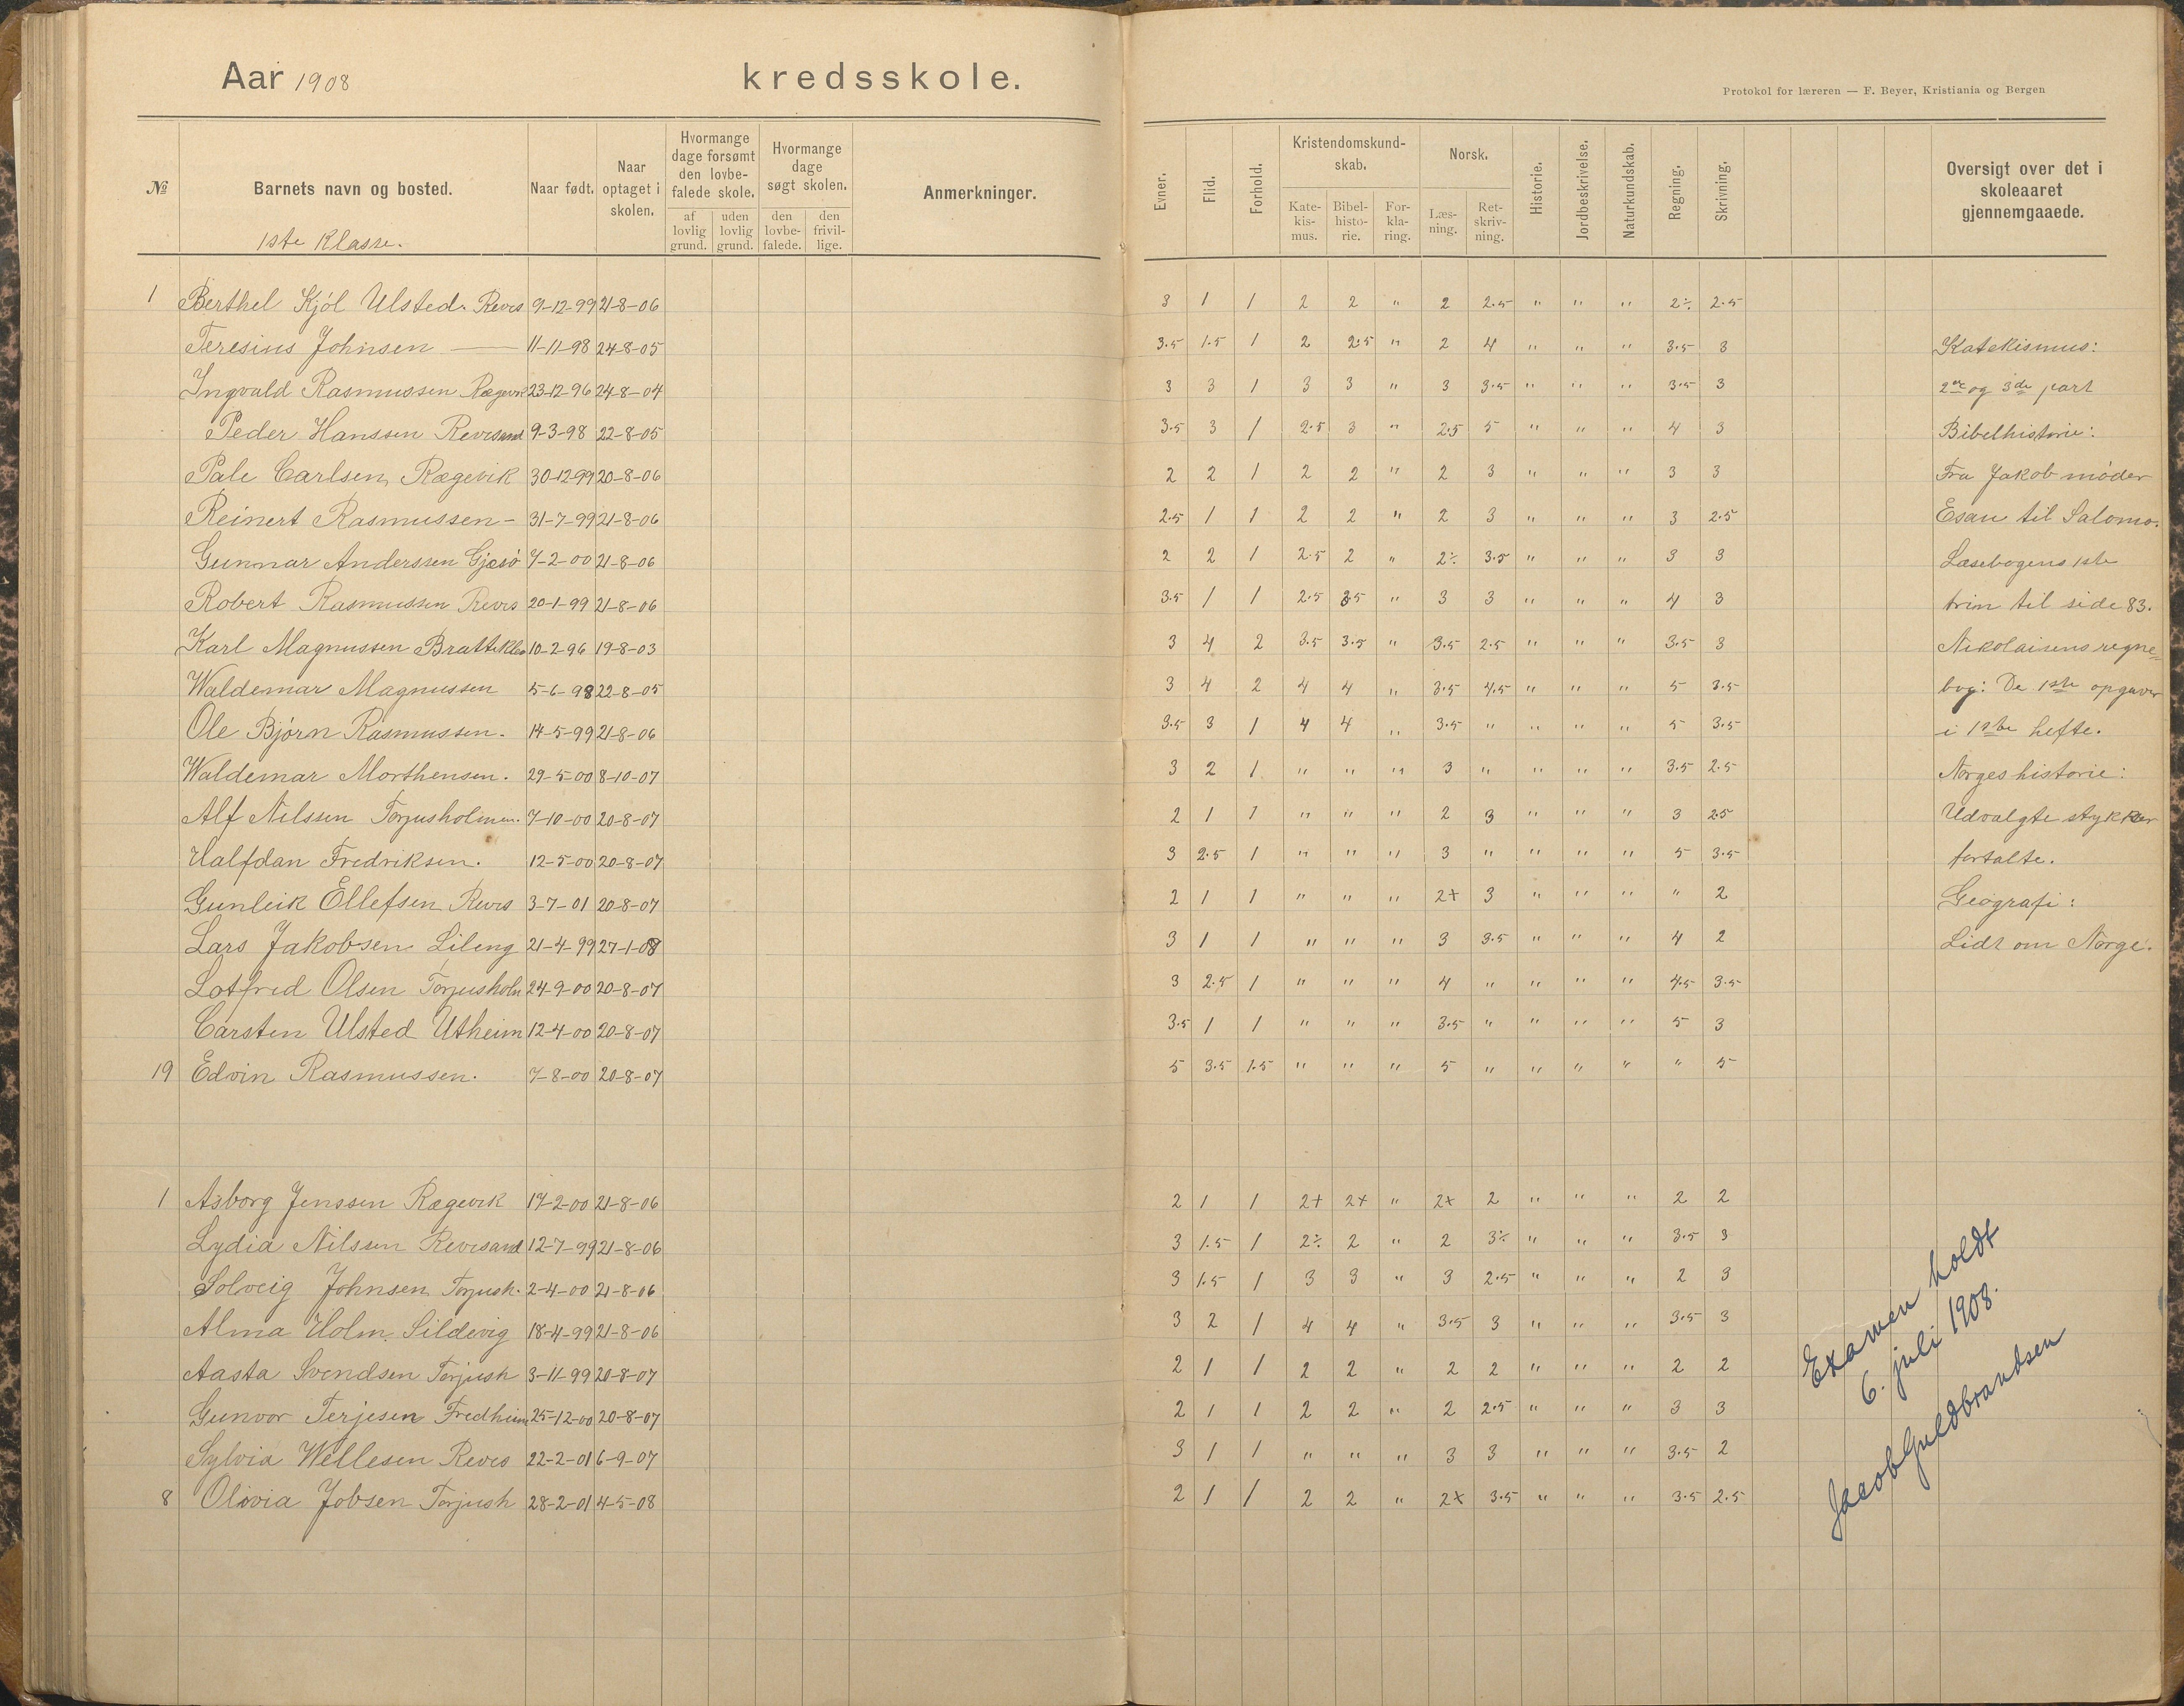 Aar 1908 kredsskole.
Protokol for læreren — F. Beyer, Kristiania og Bergen
№ Barnets navn og bosted. Naar født. Naar optaget i skolen. Hvormange dage forsømt den lovbefalede skole. af lovlig grund. uden lovlig grund. Hvormange dage søgt skolen. den lovbefalede. den frivillige. Anmerkninger. Evner. Flid. Forhold. Kristendomskundskab. Katekismus. Bibelhistorie. Forklaring. Norsk. Læsning. Retskrivning. Historie. Jordbeskrivelse. Naturkundskab. Regning. Skrivning. Oversigt over det i skoleaaret gjennemgaaede.
1ste Klasse.
1 Berthel Kjøl Ulsted. Reves 9-12-99 21-8-06 3 1 1 2 2 " 2 2.5 " " " 2÷ 2.5
Teresius Johnsen — 11-11-98 24-8-05 3.5 1.5 1 2 2.5 " 2 4 " " " 3.5 3 Katekismus:
Ingvald Rasmussen Rægevik 23-12-96 24-8-04 3 3 1 3 3 " 3 3.5 " " " 3.5 3 2en og 3die part
Peder Hanssen Revesand 9-3-98 22-8-05 3.5 3 1 2.5 3 " 2.5 5 " " " 4 3 Bibelhistorie:
Pale Carlsen, Rægevik 30-12-99 20-8-06 2 2 1 2 2 " 2 3 " " " 3 3 Fra Jakob møder
Reinert Rasmussen - 31-7-99 21-8-06 2.5 1 1 2 2 " 2 3 " " " 3 2.5 Esau til Salomo.
Gunnar Anderssen Gjesø 7-2-00 21-8-06 2 2 1 2.5 2 " 2÷ 3.5 " " " 3 3 Læsebogens 1ste
Robert Rasmussen Reves 20-1-99 21-8-06 3.5 1 1 2.5 3.5 " 3 3 " " " 4 3 trin til side 83.
Karl Magnussen Bratteklev 10-2-96 19-8-03 3 4 2 3.5 3.5 " 3.5 2.5 " " " 3.5 3 Nikolaisens regne=
Waldemar Magnussen 5-6-98 22-8-05 3 4 2 4 4 " 3.5 4.5 " " " 5 3.5 bog: De 1ste opgaver
Ole Bjørn Rasmussen. 14-5-99 21-8-06 3.5 3 1 4 4 " 3.5 " " " " 5 3.5 i 1ste hefte.
Waldemar Morthensen. 29-5-00 8-10-07 3 2 1 " " " 3 " " " " 3.5 2.5 Norges historie:
Alf Nilssen Torjusholmen. 7-10-00 20-8-07 2 1 1 " " " 2 3 " " " 3 2.5 Udvalgte stykker
Halfdan Fredriksen. 12-5-00 20-8-07 3 2.5 1 " " " 3 " " " " 5 3.5 fortalte.
Gunleik Ellefsen Reves 3-7-01 20-8-07 2 1 1 " " " 2+ 3 " " " " 2 Geografi:
Lars Jakobsen Lileng 21-4-99 27-1-08 3 1 1 " " " 3 3.5 " " " 4 2 Lidt om Norge.
Lotfred Olsen Torjusholm 24-9-00 20-8-07 3 2.5 1 " " " 4 " " " " 4.5 3.5
Carsten Ulsted Utheim 12-4-00 20-8-07 3.5 1 1 " " " 3.5 " " " " 5 3
19 Edvin Rasmussen. 7-8-00 20-8-07 5 3.5 1.5 " " " 5 " " " " " 5
1 Asborg Jenssen Rægevik 17-2-00 21-8-06 2 1 1 2+ 2+ " 2+ 2 " " " 2 2
Lydia Nilssen Revesand 12-7-99 21-8-06 3 1.5 1 2÷ 2 " 2 3÷ " " " 3.5 3
Solveig Johnsen Torjush. 2-4-00 21-8-06 3 1.5 1 3 3 " 3 2.5 " " " 2 3
Alma Holm. Sildevig 18-4-99 21-8-06 3 2 1 4 4 " 3.5 3 " " " 3.5 3
Aasta Svendsen Torjush 3-11-99 20-8-07 2 1 1 2 2 " 2 2 " " " 2 2
Gunvor Terjesen Fredheim 25-12-00 20-8-07 2 1 1 2 2 " 2 2.5 " " " 3 3
Sylvia Wellesen Reves 22-2-01 6-9-07 3 1 1 " " " 3 3 " " " 3.5 2
8 Olivia Jobsen Torjush 28-2-01 4-5-08 2 1 1 2 2 " 2+ 3.5 " " " 3.5 2.5
Examen holdt
6. juli 1908.
Jacob Guldbrandsen